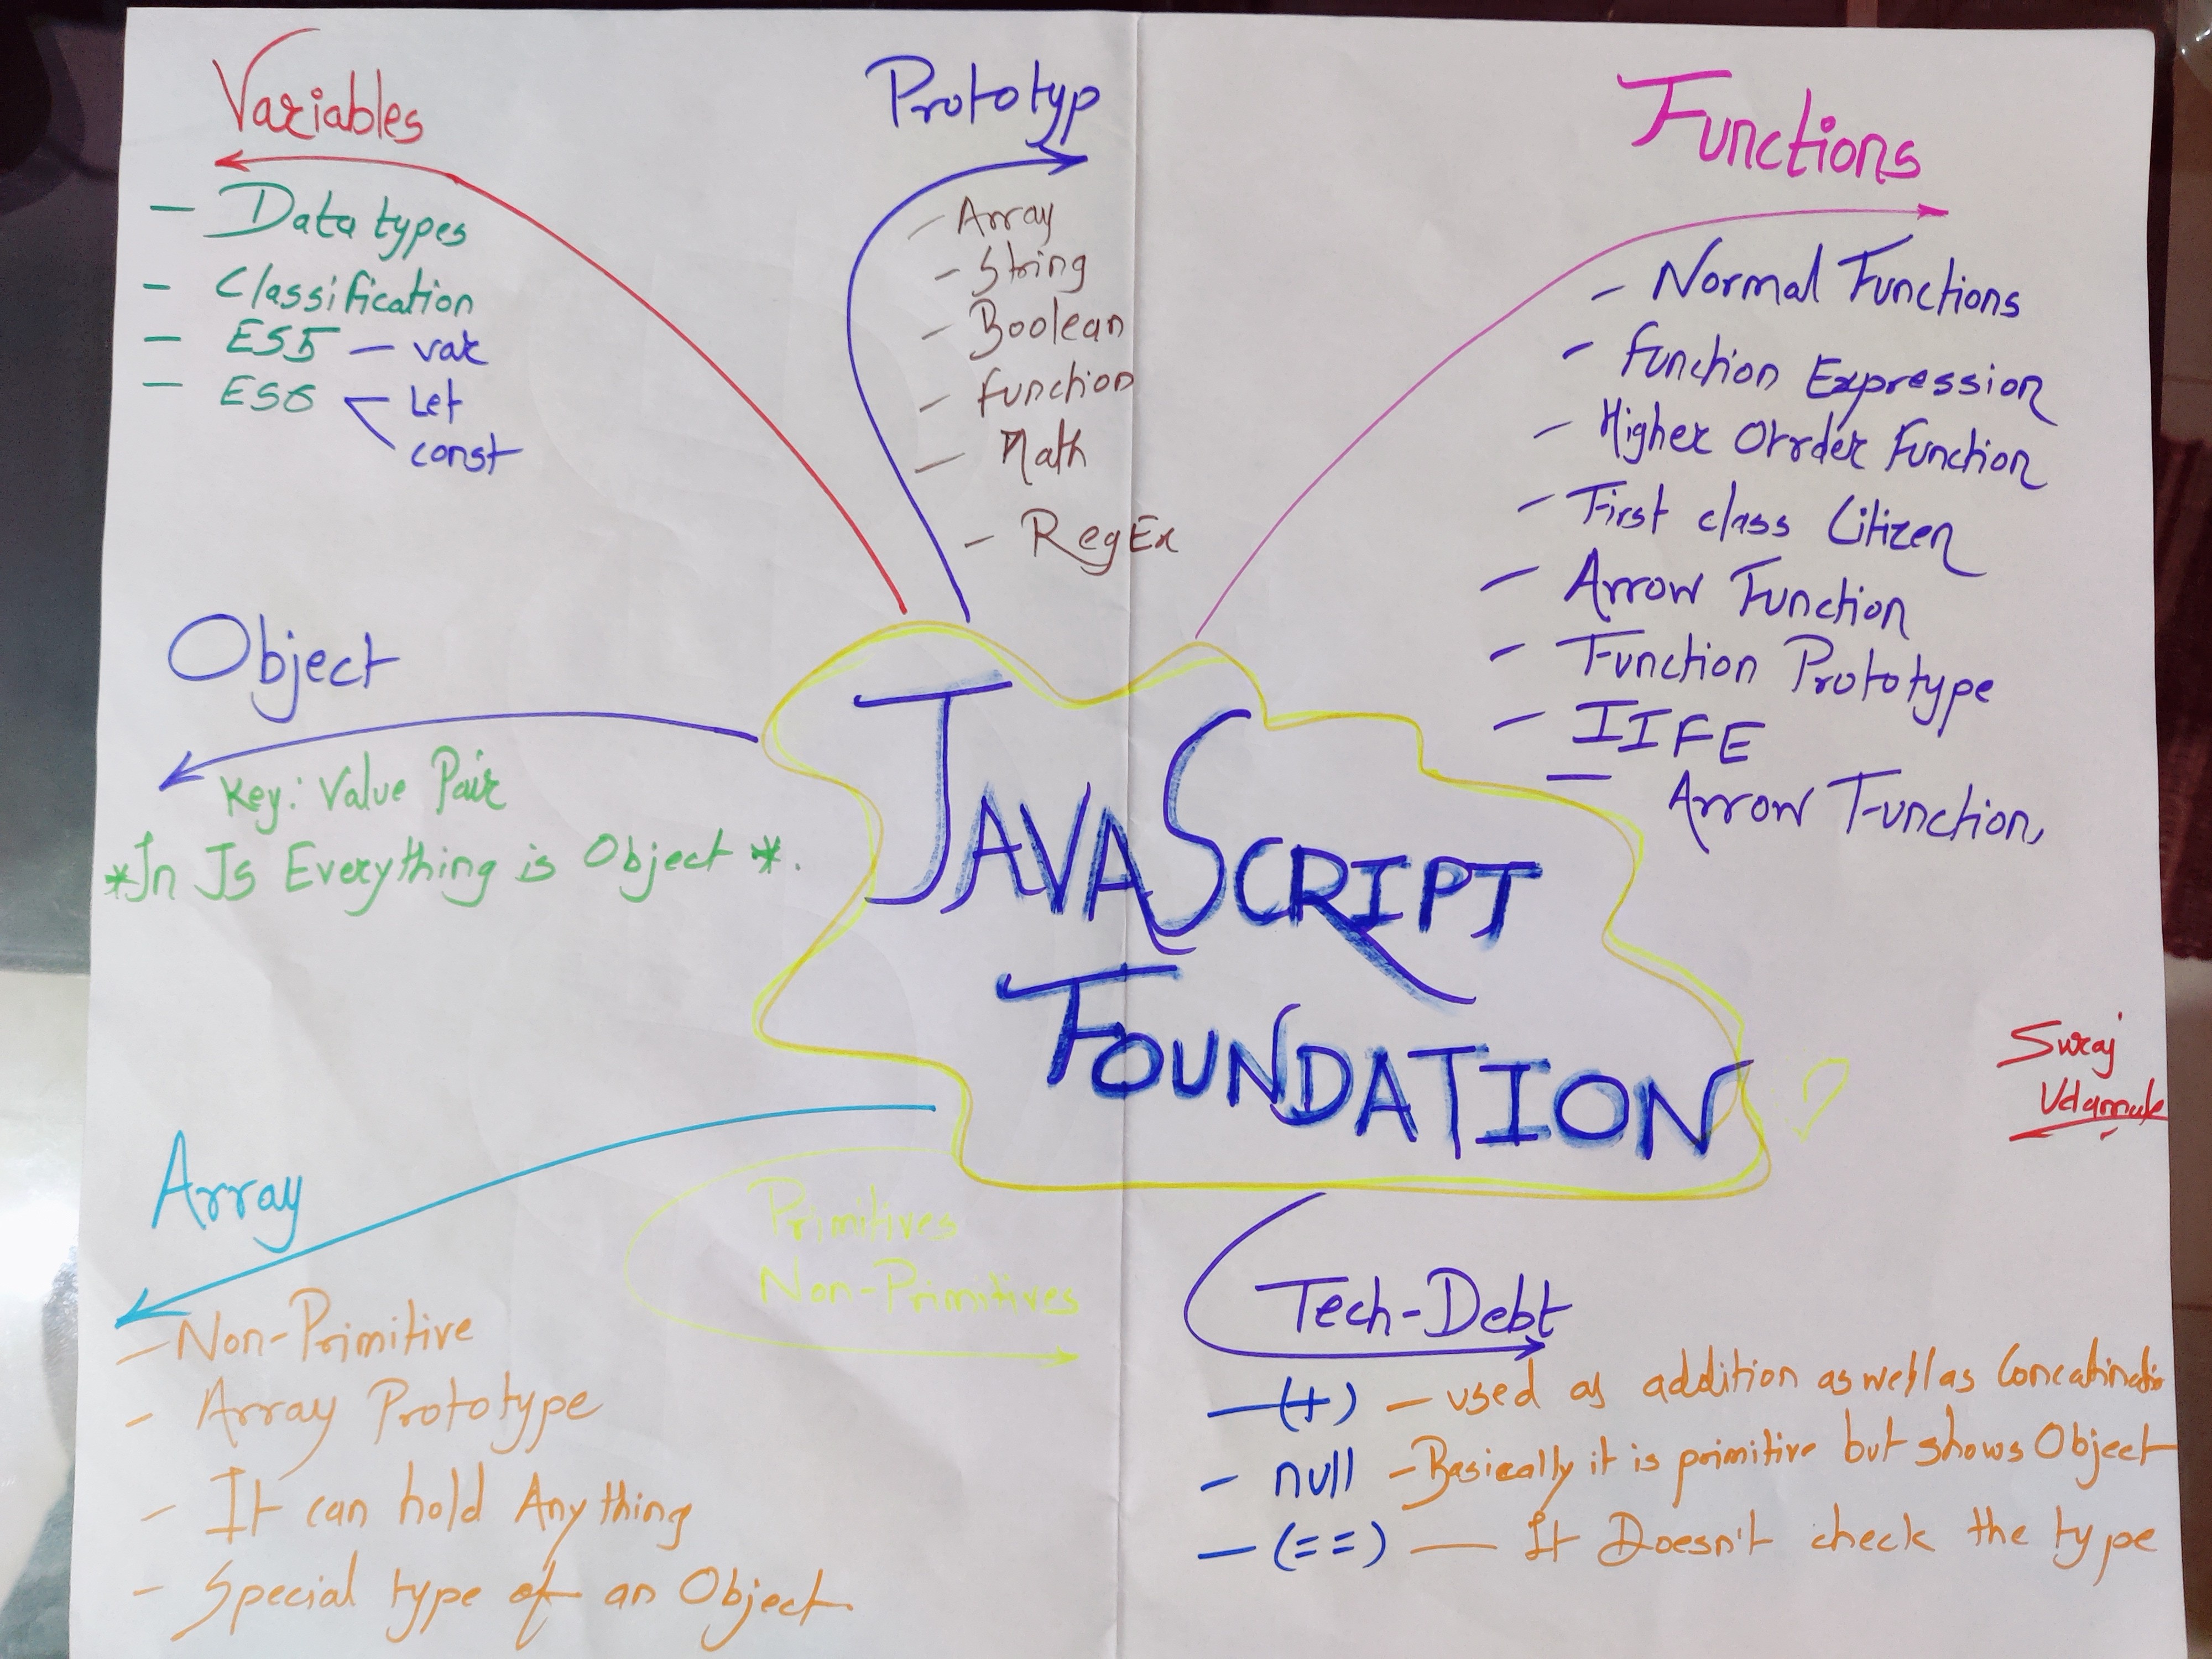 Variables
- Data types
- Classification
- ES5 - var
- ES6 < Let
const
Prototyp
- Array
- String
- Boolean
- Function
- Math
- RegEx
Functions
- Normal Functions
- Function Expression
- Higher Otrder Function
- First class Citizen
- Arrow Function
- Function Prototype
- IIFE
- Arrow Function,
Object
Key: Value Pair
*In Js Everything is Object *.
JAVASCRIPT
FOUNDATION
Array
- Non-Primitive
- Array Prototype
- It can hold Any thing
- Special type of an Object.
Primitives
Non-Primitives
Tech-Debt
- (+) - used as addition as well as
- null - Basically it is primitive but shows Object
- (==) - It Doesn't check the type